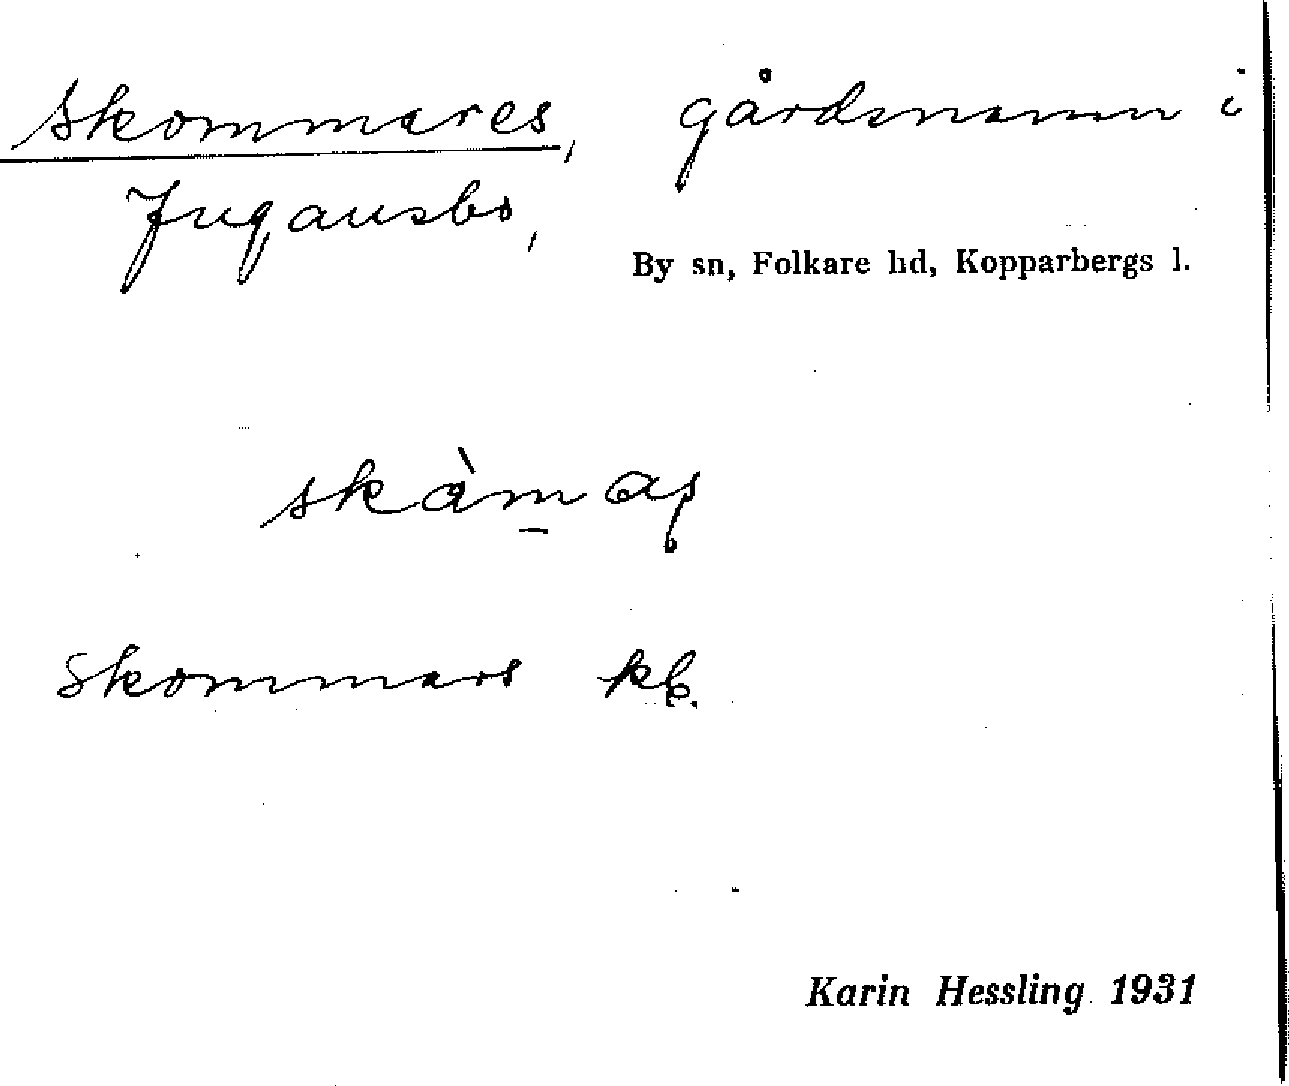 skommares, gårdsnamn i
Jugansbo,
By sn, Folkare hd, Kopparbergs l.
skommars kb.
Karin Hessling 1931